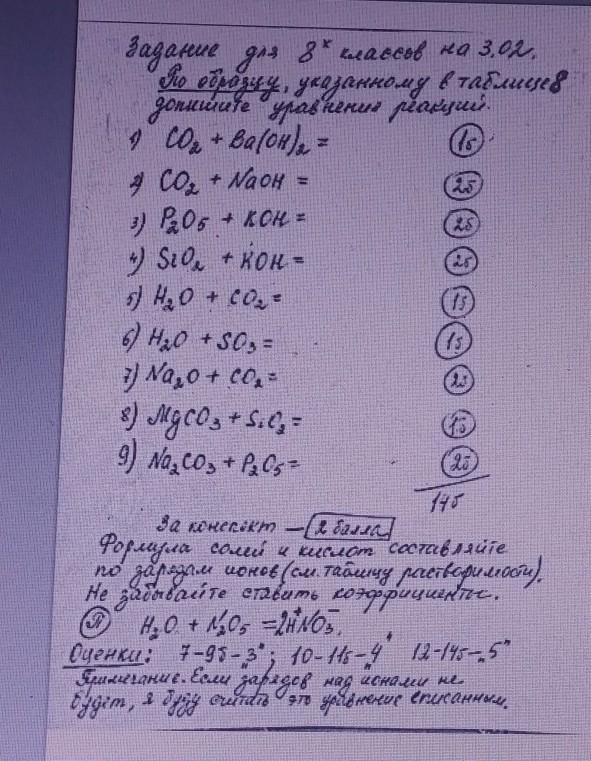 Задание для 8х классов на 3.02.
По образцу, указанному в таблице 8
допишите уравнения реакций.
1) CO₂ + Ba(OH)₂ = 1б
2) CO₂ + NaOH = 2б
3) P₂O₅ + KOH = 2б
4) SiO₂ + KOH = 2б
5) H₂O + CO₂ = 1б
6) H₂O + SO₃ = 1б
7) Na₂O + CO₂ = 2б
8) MgCO₃ + SiO₂ = 1б
9) Na₂CO₃ + P₂O₅ = 2б
14б
За конспект — 2 балла
Формулы солей и кислот составляйте
по зарядам ионов (см. таблицу растворимости).
Не забывайте ставить коэффициенты.
П H₂O + N₂O₅ = 2H⁺NO₃⁻.
Оценки: 7-9б-„3"; 10-11б-„4" 12-14б-„5"
Примечание. Если зарядов над ионами не
будет, я буду считать это уравнение списанным.